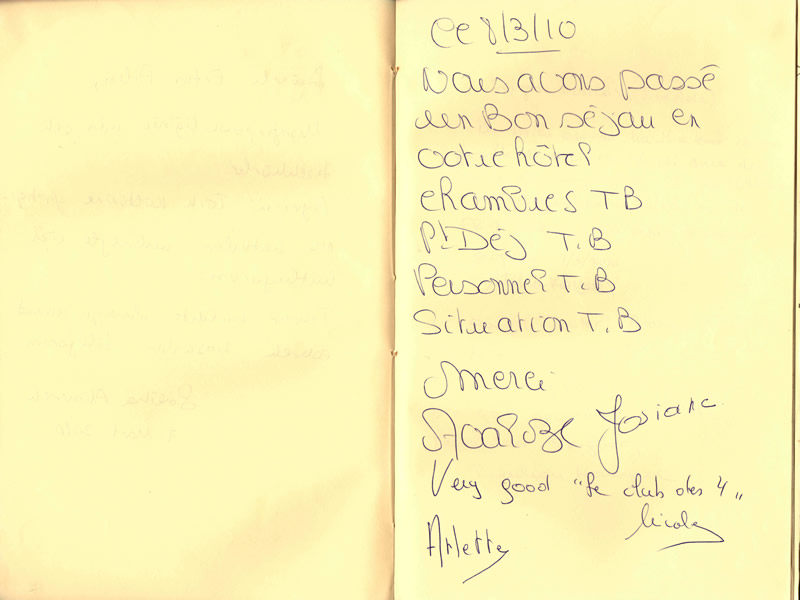 Ce 8/3/10
Nous avons passé
un Bon séjou en
votre hôtel
chambres TB
Pt Déj T.B
Personnel T.B
Situation T.B
Merci
Josiane
Very good "Le club des 4"
Nicole
Arlette